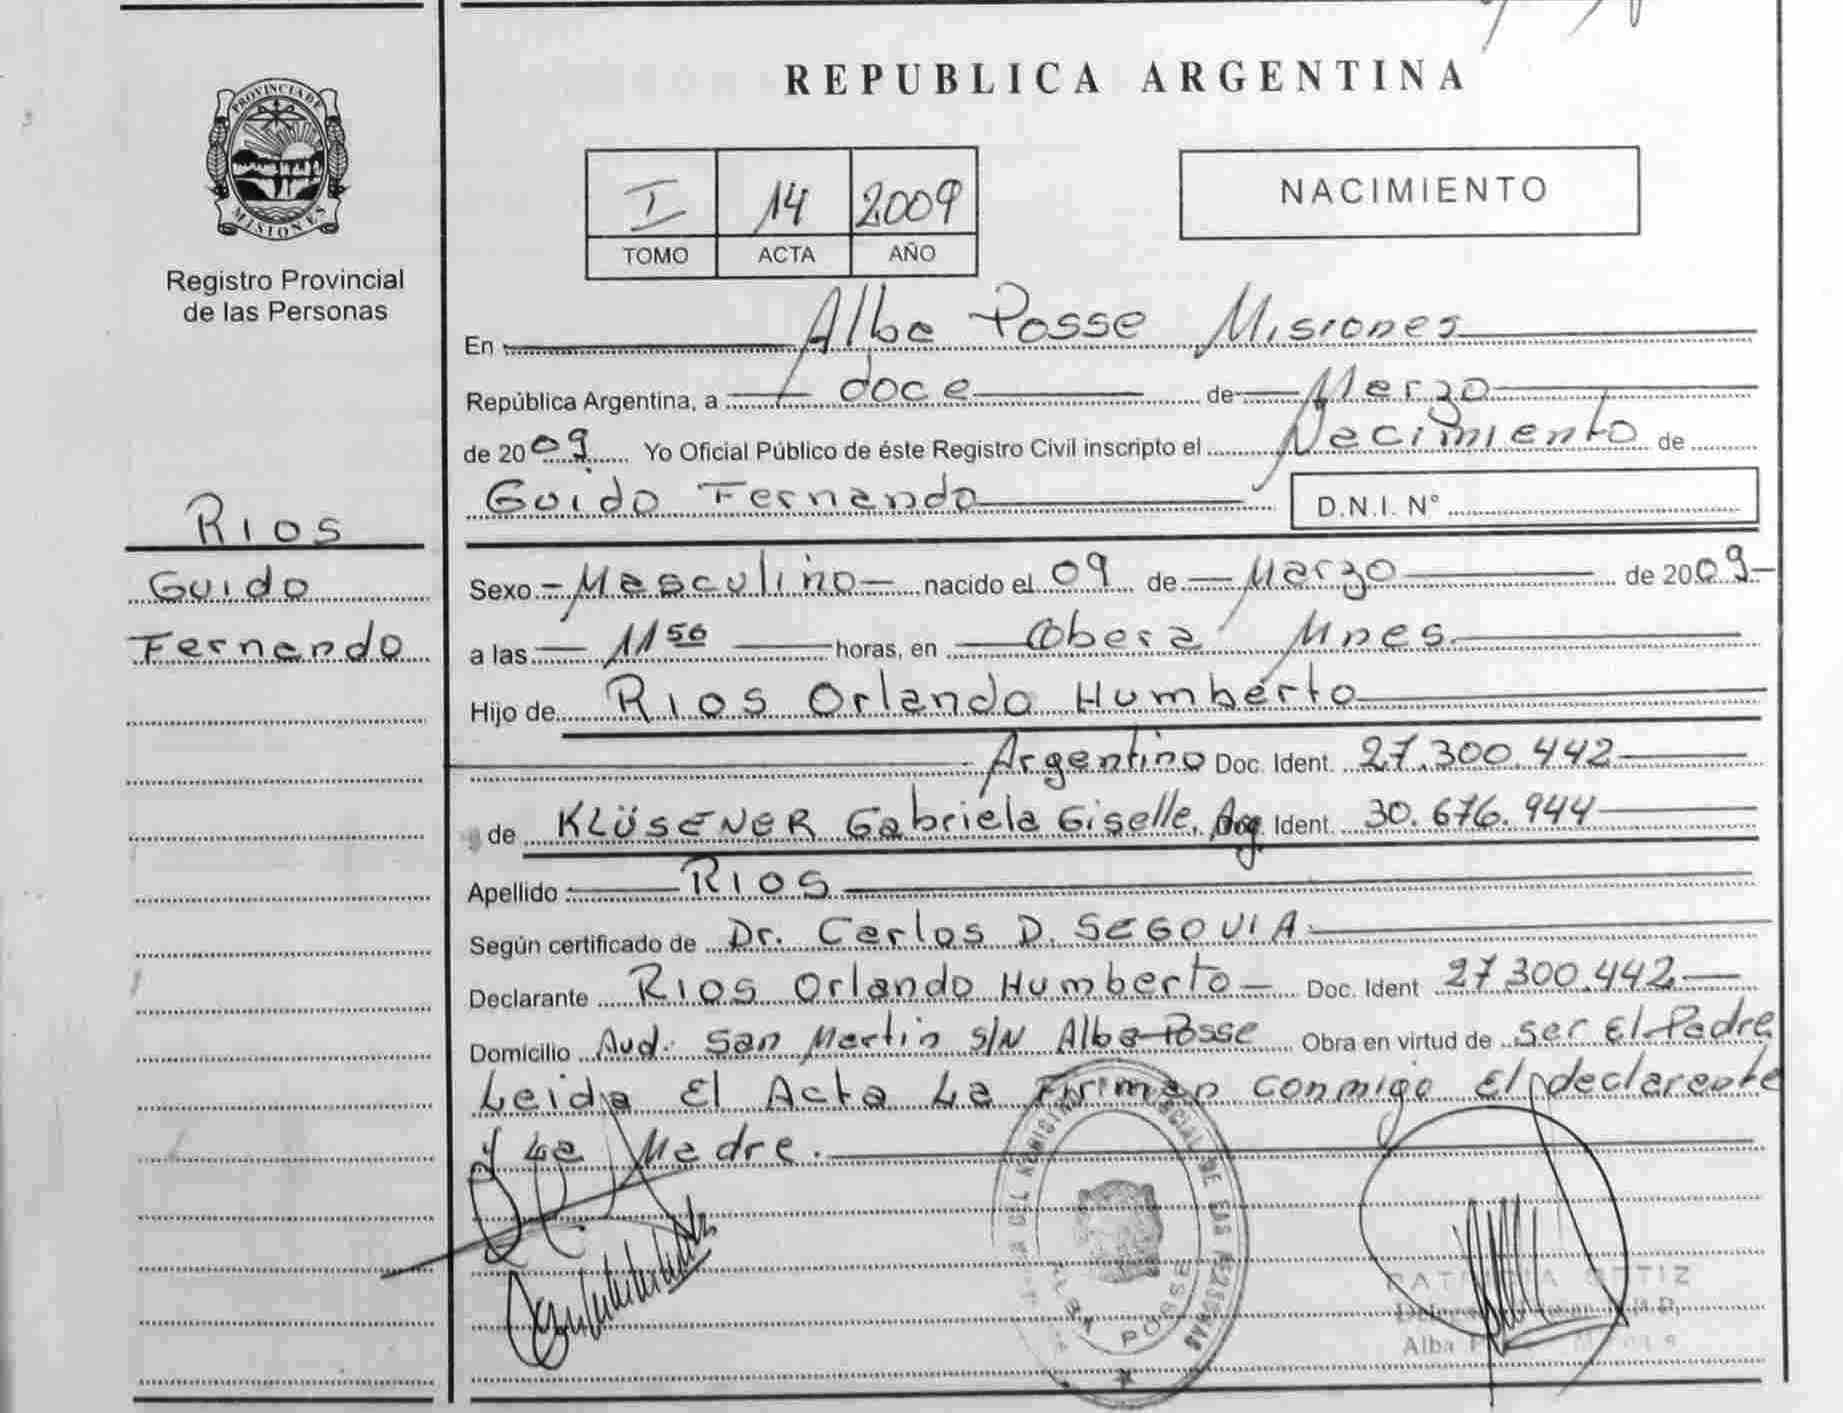 PROVINCIA DE
MISIONES
Registro Provincial
de las Personas
RIOS
Guido
Fernando
REPUBLICA ARGENTINA
I 14 2009
TOMO ACTA AÑO
NACIMIENTO
En Alba Posse Misiones
República Argentina, a doce de Marzo
de 2009 Yo Oficial Público de éste Registro Civil inscripto el Nacimiento de
Guido Fernando D.N.I. N°
Sexo - Masculino - nacido el 09 de Marzo de 2009
a las 11 56 horas, en Obera Mnes
Hijo de RIOS Orlando Humberto
Argentino Doc. Ident. 27.300.442
de KLÜSENER Gabriela Giselle, Arg. Ident. 30.676.944
Apellido RIOS
Según certificado de Dr. Carlos D. SEGOVIA
Declarante RIOS Orlando Humberto Doc. Ident 27.300.442
Domicilio Avd. San Martin S/N Alba Posse Obra en virtud de ser El Padre
Leida El Acta La Firman conmigo El declarante
y La Madre.
DE LAS PERSONAS
ALBA POSSE
ORTIZ
Alba